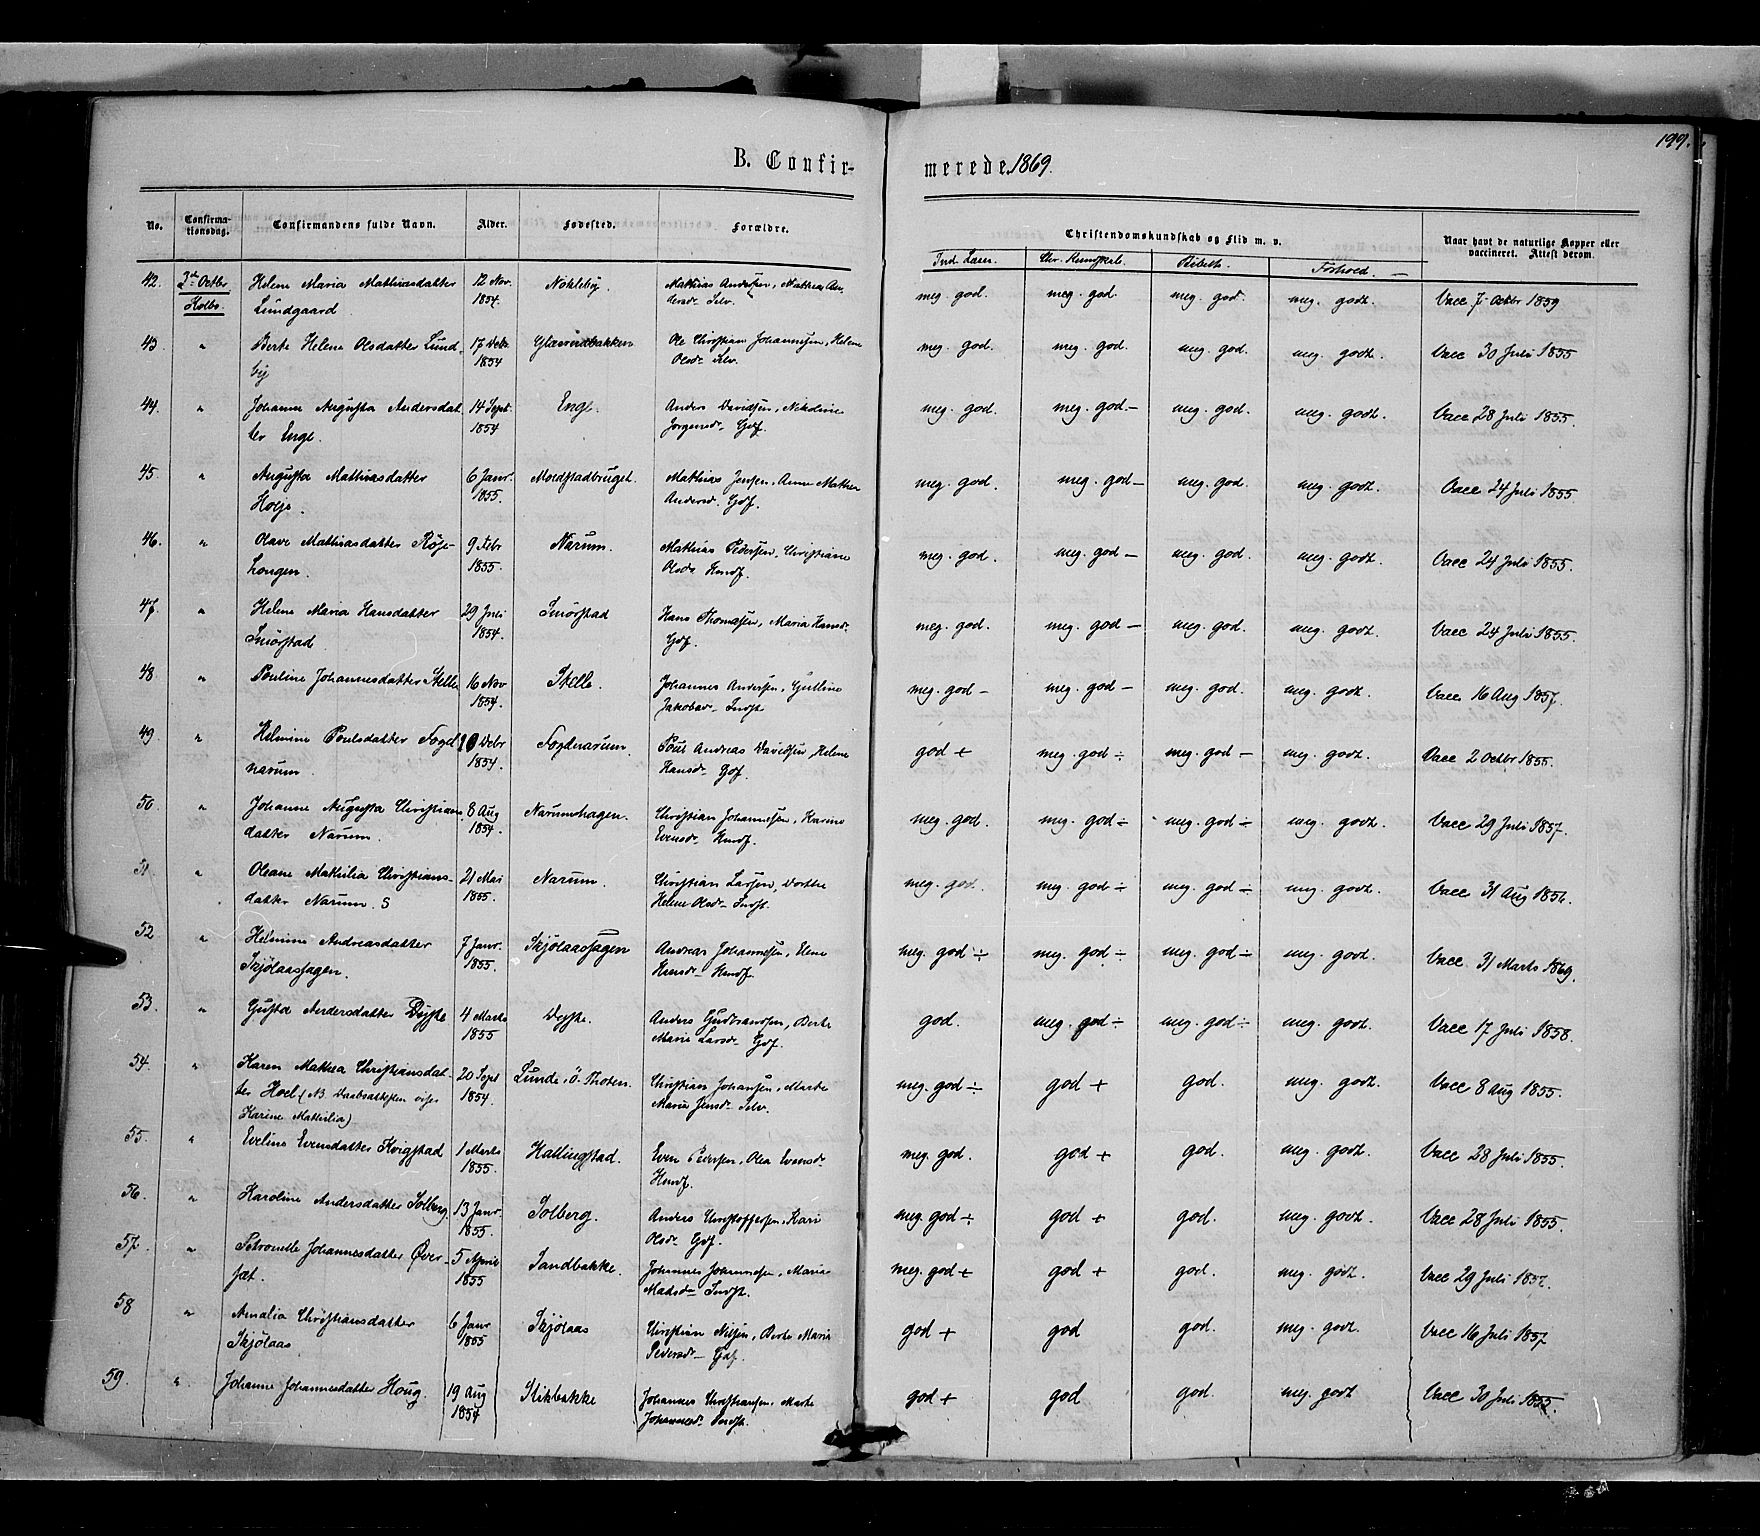 199.
B. Confirmerede 1869.
No. Confirmationsdag. Confirmandens fulde Navn. Alder. Fødested. Forældre. Christendomskundskab og Flid m. v. Naar havt de naturlige Kopper eller vaccineret. Attest derom.
Ind. Læsn. Chr. Kundskab. Bibelh. Forhold. —
42. 3die Octbr Helene Maria Mathiasdatter 12 Nov. Nøkleby. Mathias Andersen, Mathea An- meg. god. meg. god. meg. god. meg. godt. Vacc 7 Octbr 1859
Kolbo Lundgaard 1854. dersdr. Selv.
43. " Berte Helene Olsdatter Lund- 17 Debr. Glæsrudbakken Ole Christian Johannesen, Helene meg. god. meg. god. meg. god. meg. godt. Vacc 30 Juli 1855
by 1854 Olsdr. Selv.
44. " Johanne Augusta Andersdat- 14 Sept. Enge. Anders Davidsen, Nikoline meg. god. meg. god. — meg. god. meg. godt. Vacc 28 Juli 1855.
ter Enge. 1854 Jorgensdr. Gdf.
45. " Augusta Mathiasdatter 6 Janr. Moedstadbruget. Mathias Jensen, Anne Mathea meg. god. meg. god — meg. god. meg. godt. Vacc 24 Juli 1855
Holje. 1855. Andersd. Gdf.
46. " Olave Mathiasdatter Röise- 9 Febr Narum. Mathias Pedersen, Christiane meg. god. meg. god — meg. god. meg. godt. Vacc 24 Juli 1855.
longen. 1855. Olsdr Husmf.
47. " Helene Maria Hansdatter 29 Juli Smörstad Hans Thomasen, Maria Hansdr. meg. god. meg. god — meg. god. meg. godt. Vacc 24 Juli 1855.
Smörstad 1854. Gdf.
48. " Pouline Johannesdatter Skelle 16 Nov Skelle. Johannes Andersen, Guline meg. god — meg. god — meg. god. meg. godt. Vacc 16 Aug 1857.
1854. Jakobsdr. Indst.
49. " Helmine Poulsdatter Fogd- 10 Debr Fogdnarum. Poul Andreas Davidsen, Helene god + meg. god ÷ meg. god — meg. godt. Vacc 2 Octbr 1855.
narum. 1854. Hansdr. Gdf.
50. " Johanne Augusta Christians- 8 Aug Narumshagen. Christian Johannesen, Karine meg. god. meg. god ÷ meg. god ÷ meg. godt. Vacc 29 Juli 1857.
datter Narum. 1854. Evensdr. Husmf.
51. " Oleane Mathilia Christians- 21 Mai Narum. Christian Larsen, Dorthe meg. god. meg. god ÷ meg. god ÷ meg. godt. Vacc 31 Aug 1856.
datter Narum. S 1855. Helene Olsdr. Indst.
52. " Helmine Andreasdatter 7 Janr. Skjölaashagen Andreas Johannesen, Elene meg. god ÷ meg. god ÷ meg. god ÷ meg. godt. Vacc 31 Marts 1869.
Skjölaashagen. 1855. Hansdr. Husmf.
53. " Gusta Andersdatter Dyste 4 Marts Dyste. Anders Gudbrandsen, Berte god. meg. god ÷ meg. god ÷ meg. godt. Vacc 17 Juli 1858.
1855 Marie Larsdr. Gdf.
54. " Karen Mathea Christiansdat- 20 Sept Lunde, Ö. Thoten. Christian Johansen, Marte meg. god ÷ god + god. meg. godt. Vacc 8 Aug 1855.
ter Hoel (NB. Daabsattesten viser 1854. Marie Jensdr. Selv.
Karine Mathilia)
55. " Eveline Evensdatter Kvigstad 1 Marts Hallingstad. Even Pedersen, Olea Evensdr. meg. god. god + god. meg. godt. Vacc 28 Juli 1855.
1855. Husmf.
56. " Karoline Andersdatter Solberg. 13 Janr. Solberg. Anders Christoffersen, Kari meg. god ÷ god + god. meg. godt. Vacc 28 Juli 1855.
1855. Olsdr. Gdf.
57. " Petronelle Johannesdatter Över- 5 April Sandbakke. Johannes Johannesen, Maria meg. god + god + god. meg. godt. Vacc 29 Juli 1857.
sæt. 1855 Madsdr. Indst.
58 " Amalia Christiansdatter 6 Janr Skjölaas Christian Nilsen, Berte Maria god + god god. meg. godt. Vacc 16 Juli 1857
Skjölaas 1855 Pedersdr. Gdf.
59. " Johanne Johannesdatter Houg. 19 Aug Stikbakke Johannes Christiansen, Marte god + god god. meg. godt Vacc 30 Juli 1855.
1854 Johannesdr. Indst.